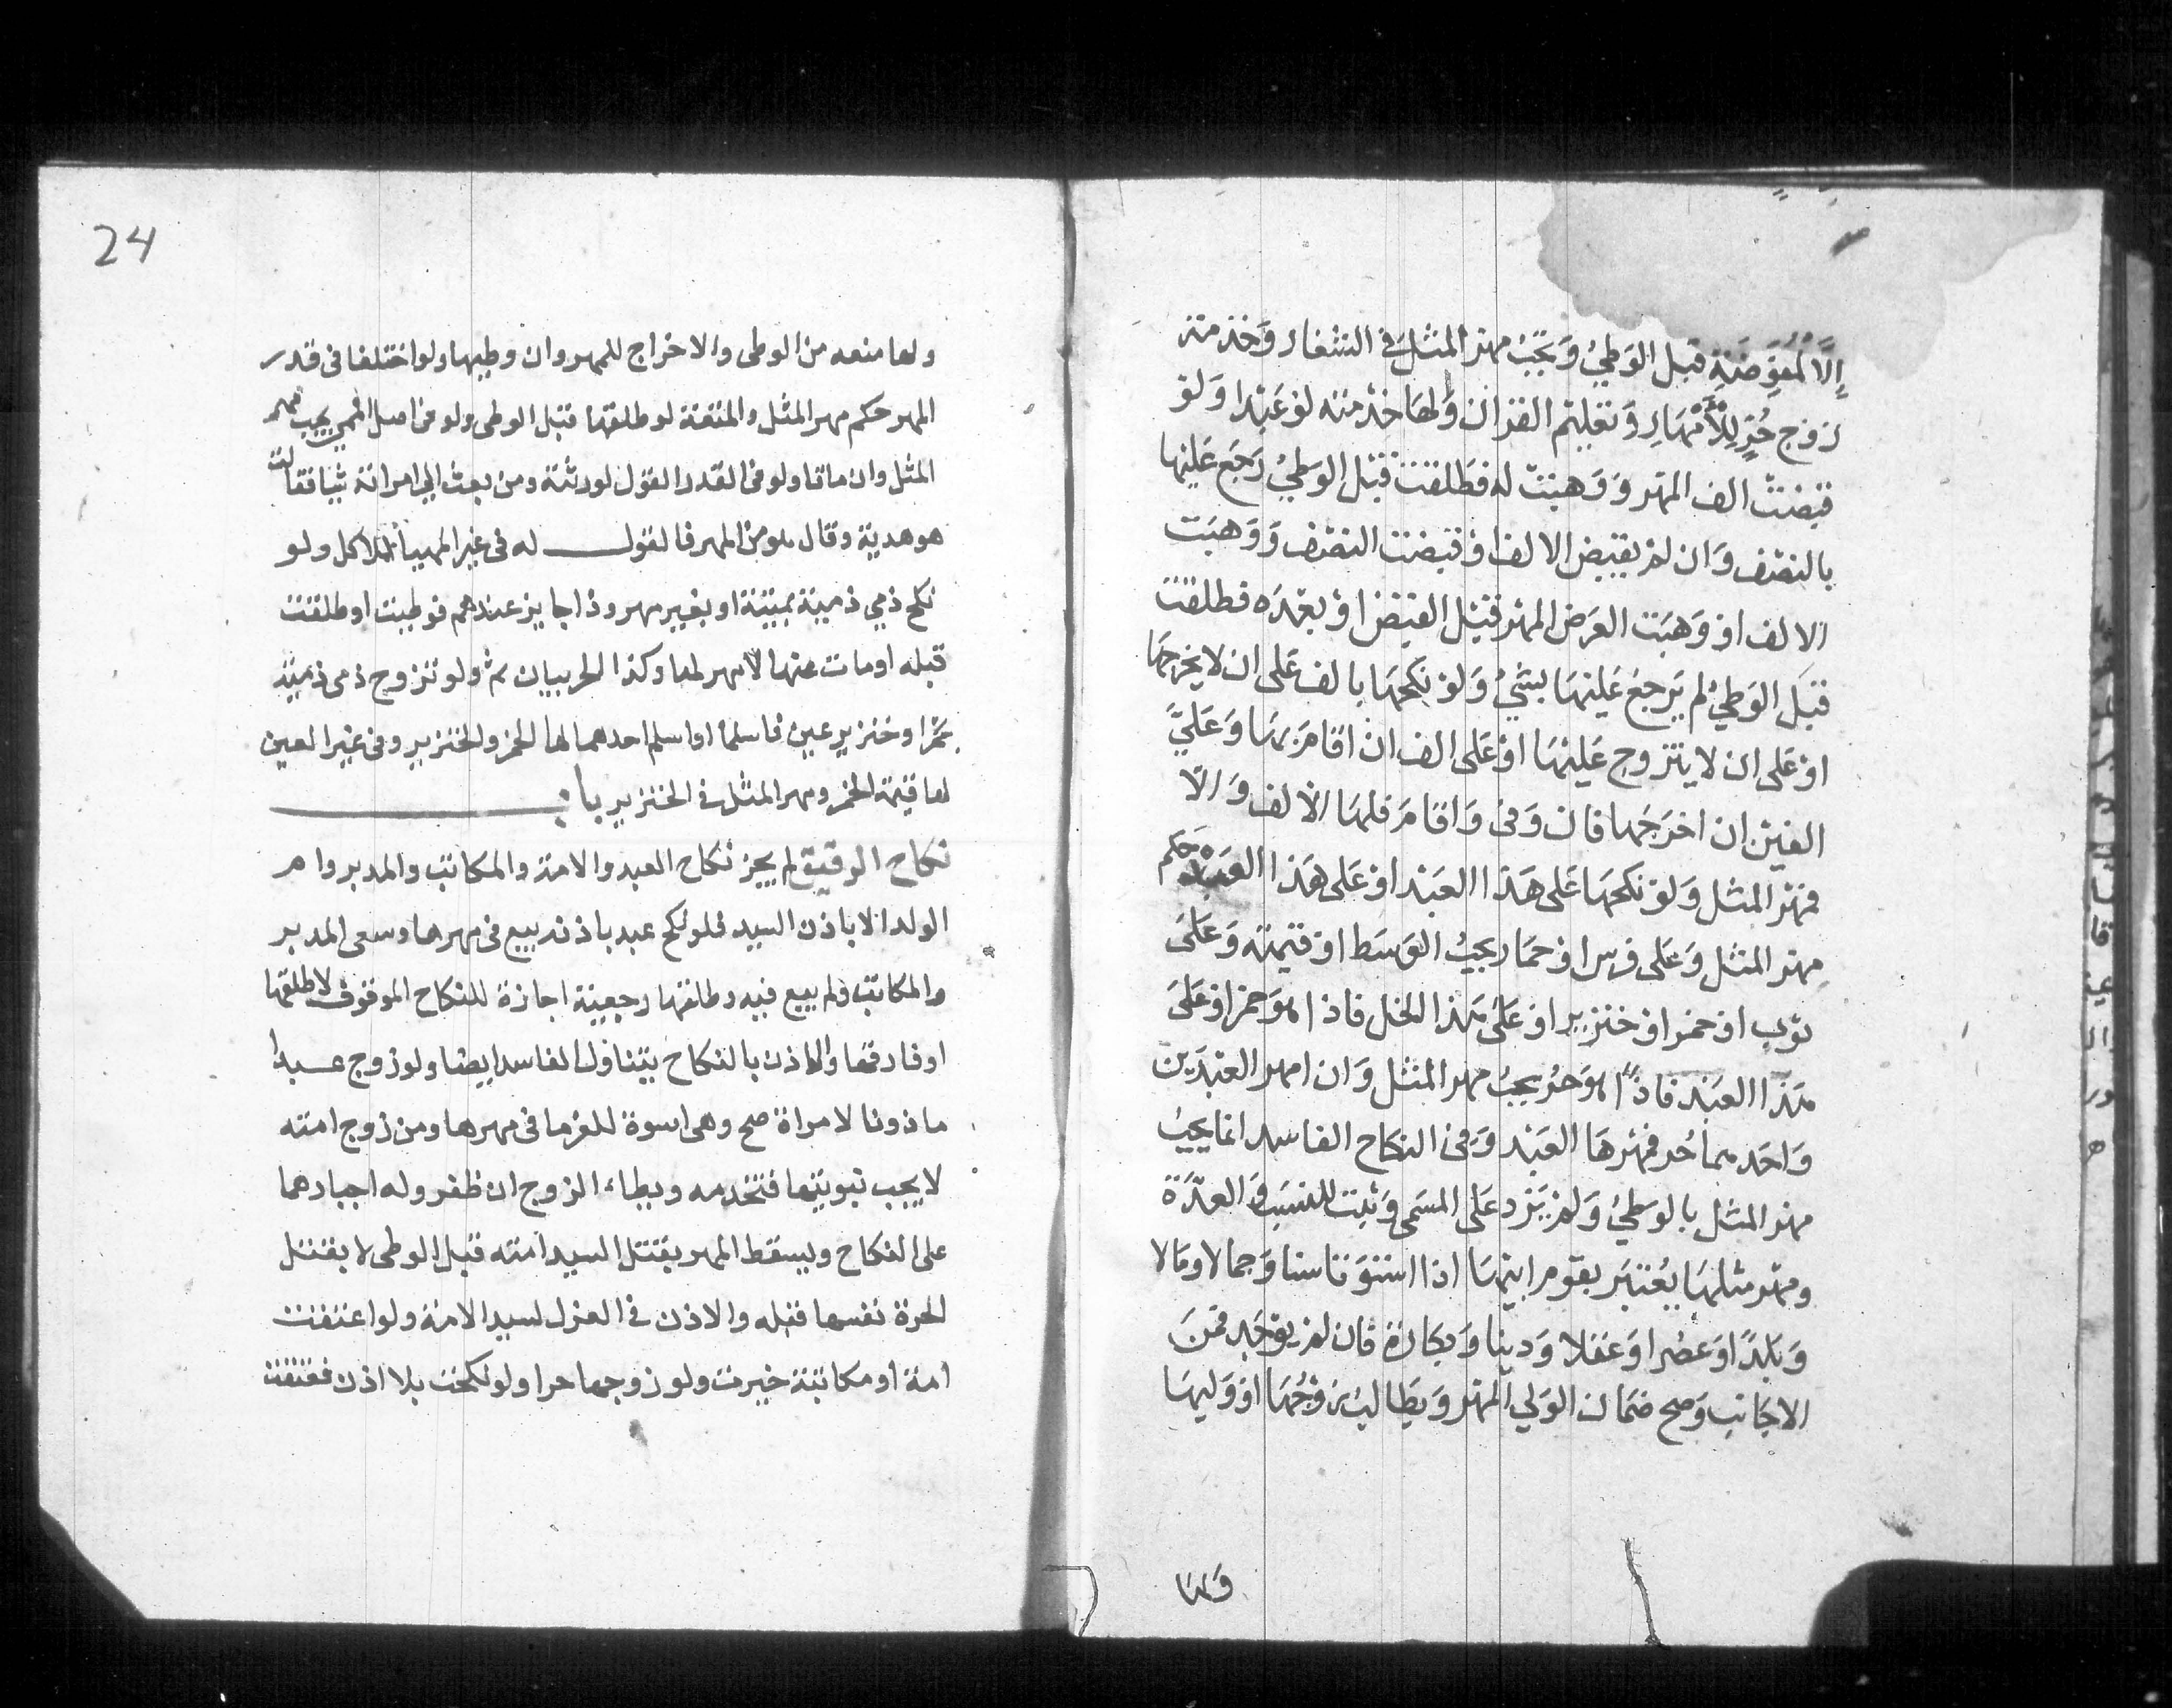 إلا للمفوضة قبل الوطئ ويجب مهر المثل في الشغار وخدمة
زوج حر للأمهار وتعليم القران ولها خدمته لو عبدا ولو
قبضت الف المهر ووهبت له فطلقت قبل الوطئ رجع عليها
بالنصف وان لم يقبض الالف او قبضت النصف ووهبت
الالف او وهبت العرض المهر قبل القبض او بعده فطلقت
قبل الوطئ لم يرجع عليها بشئ ولو نكحها بالف على ان لا يخرجها
او على ان لا يتزوج عليها او على الف ان اقام بها وعلى
الفين ان اخرجها فان وفى واقام فلها الالف والا
فمهر المثل ولو نكحها على هذا العبد او على هذا العبد حكم
مهر المثل وعلى فرس او حمار يجب الوسط او قيمته وعلى
ثوب او خمر او خنزير او على هذا الخل فاذا هو خمر او على
هذا العبد فاذا هو حر يجب مهر المثل وان امهر العبدين
واحدهما حر فمهرها العبد وفى النكاح الفاسد انما يجب
مهر المثل بالوطئ ولم يزد على المسمى وثبت النسب والعدة
ومهر مثلها يعتبر بقوم ابيها اذا استوتا سنا وجمالا ومالا
وبلدا وعصرا وعقلا ودينا وبكارة فان لم يوجد فمن
الاجانب وصح ضمان الولي المهر ويطالب زوجها او وليها
ولها
24
ولها منعه من الوطى والاخراج للمهر وان وطيها ولو اختلفا فى قدر
المهر حكم مهر المثل والمتعة لو طلقها قبل الوطى ولو فى اصل المسمى يجب مهر
المثل وان ماتا ولو فى القدر القول لورثته ومن بعث الى امراته شيا فقالت
هو هدية وقال هو من المهر فالقول له فى غير المهيأ للاكل ولو
نكح ذمي ذمية بميتة او بغير مهر وذا جايز عندهم فوطيت او طلقت
قبله او مات عنها لا مهر لها وكذا الحربيان ثم ولو تزوج ذمى ذمية
بخمر او خنزير عين فاسلما او اسلم احدهما لها الخمر والخنزير وفى غير العين
لها قيمة الخمر ومهر المثل في الخنزير باب
نكاح الرقيق لم يجز نكاح العبد والامة والمكاتب والمدبر وام
الولد الا باذن السيد فلو نكح عبد باذنه بيع فى مهرها وسعى المدبر
والمكاتب ولم يبيع فيه وطلقها رجعية اجازة للنكاح الموقوف لا طلقها
او فارقها والاذن بالنكاح يتناول الفاسد ايضا ولو زوج عبدا
ماذونا لامراة صح وهى اسوة للغرما فى مهرها ومن زوج امته
لا يجب تبويتها فتخدمه ويطاء الزوج ان ظفر وله اجبارهما
على النكاح ويسقط المهر بقتل السيد امته قبل الوطى لا بقتل
الحرة نفسها قبله والاذن في العزل لسيد الامة ولو اعتقت
امة او مكاتبة خيرت ولو زوجها حرا ولو نكحت بلا اذن فعتقت